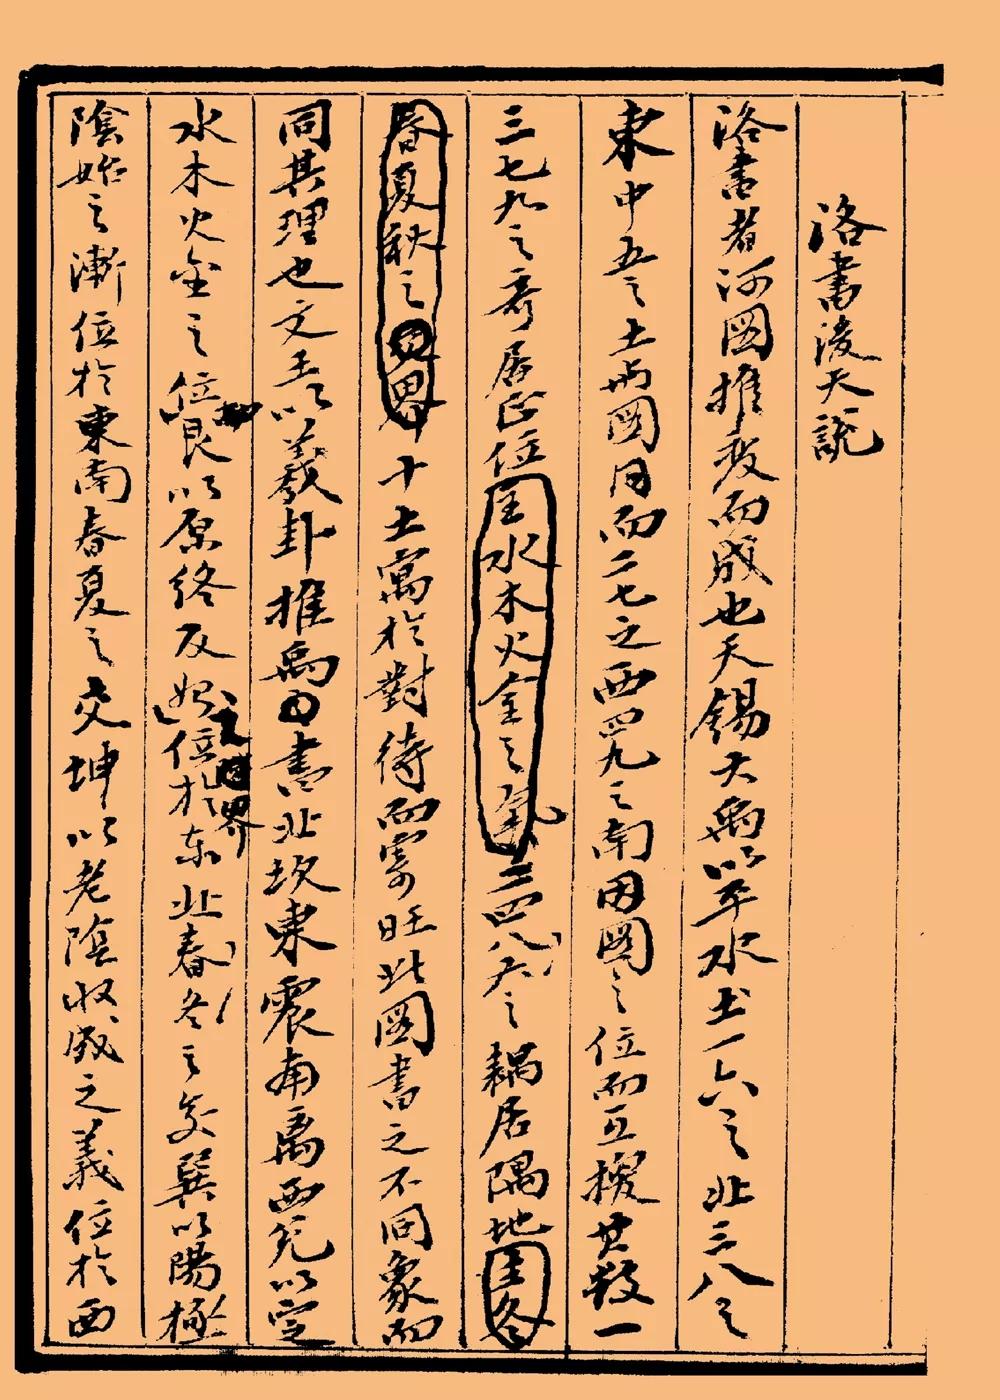 洛書後天說
洛書者河図推数而成也天錫大禹以平水土一六之北三八之
東中五之土與図同而二七之西四九之南因図之位而互換其数一
三七九之奇居正位主水木火金之氣二四八六之耦居隅地主冬
春夏秋之界十土寓於對待而寄旺此図書之不同象而
同其理也文王以羲卦推禹書北坎東震南离西兌以定
水木火金之位艮以原終反始之界位於东北春冬之交巽以陽極
陰始之漸位於東南春夏之交坤以老陰收成之義位於西